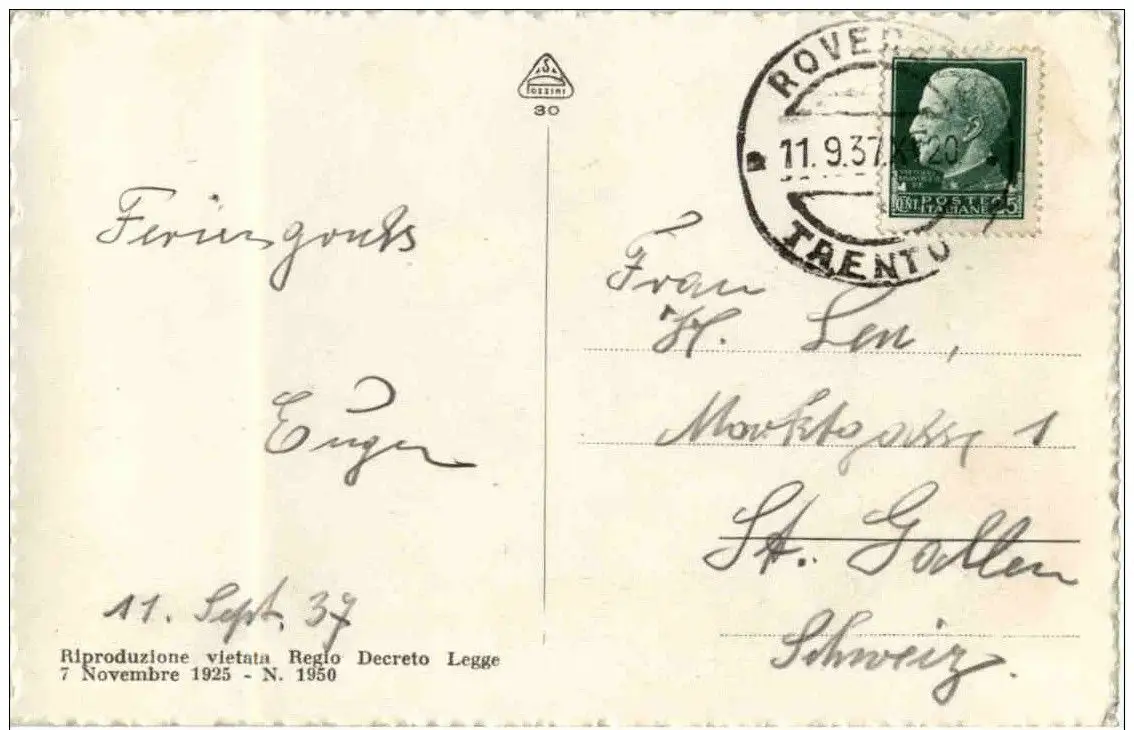 S
POZZINI
30
ROVER
11.9.37.X 20
TRENTO
POSTE
CENT ITALIANE 25
Feriengruss
Eugen
11. Sept. 37
Riproduzione vietata Regio Decreto Legge
7 Novembre 1925 - N. 1950
Frau
H. Len,
Marktgasse 1
St. Gallen
Schweiz.